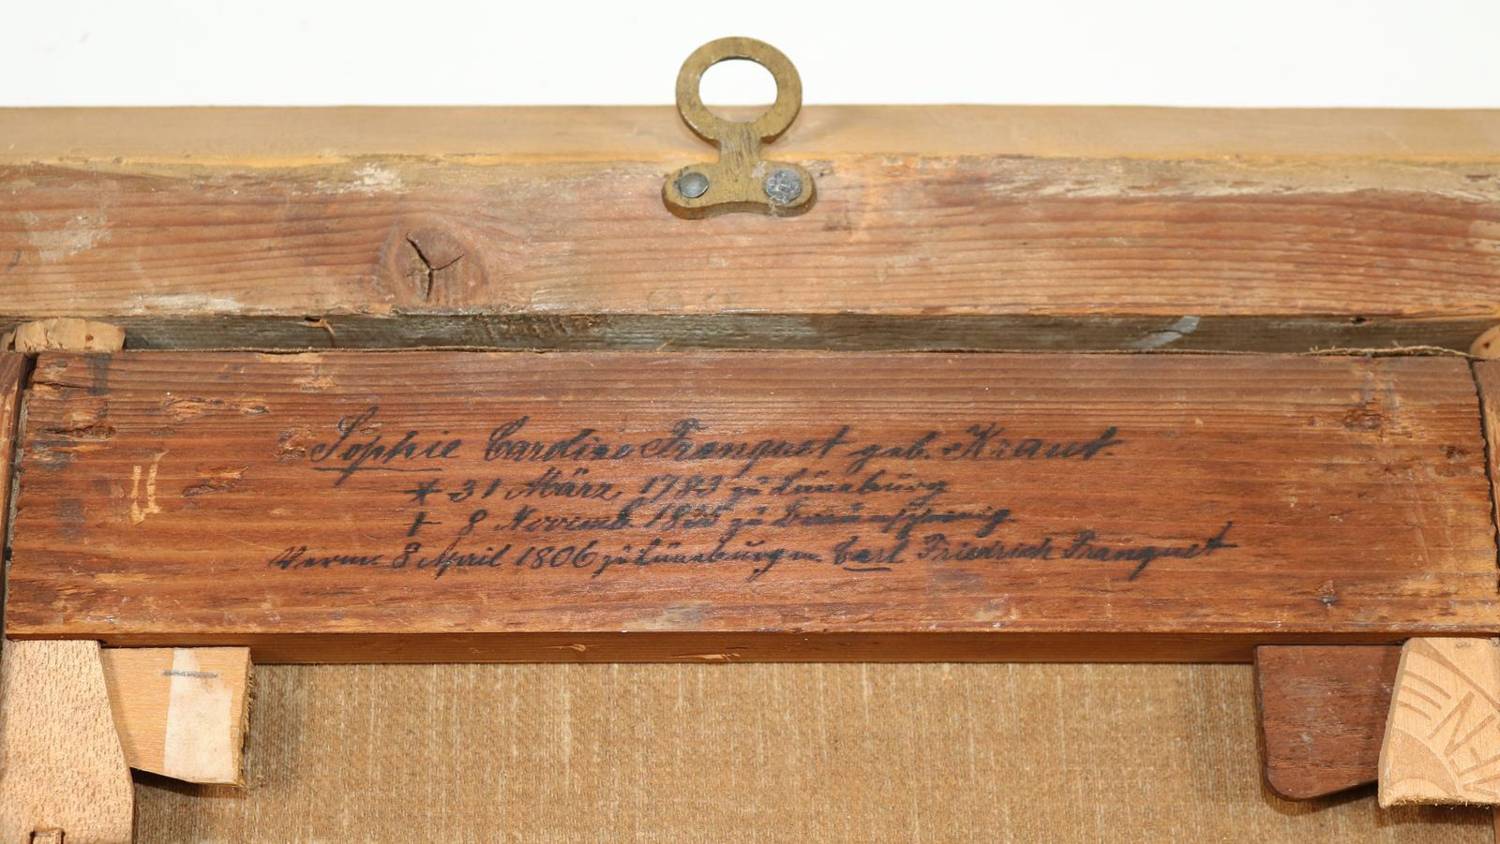 Sophie Caroline Franquet geb. Kraut.
* 31 März 1783 zu Lüneburg
† 8 Novemb. 18 zu Braunschweig
Verm. 8 April 1806 zu Lüneburg m. Carl Friedrich Franquet